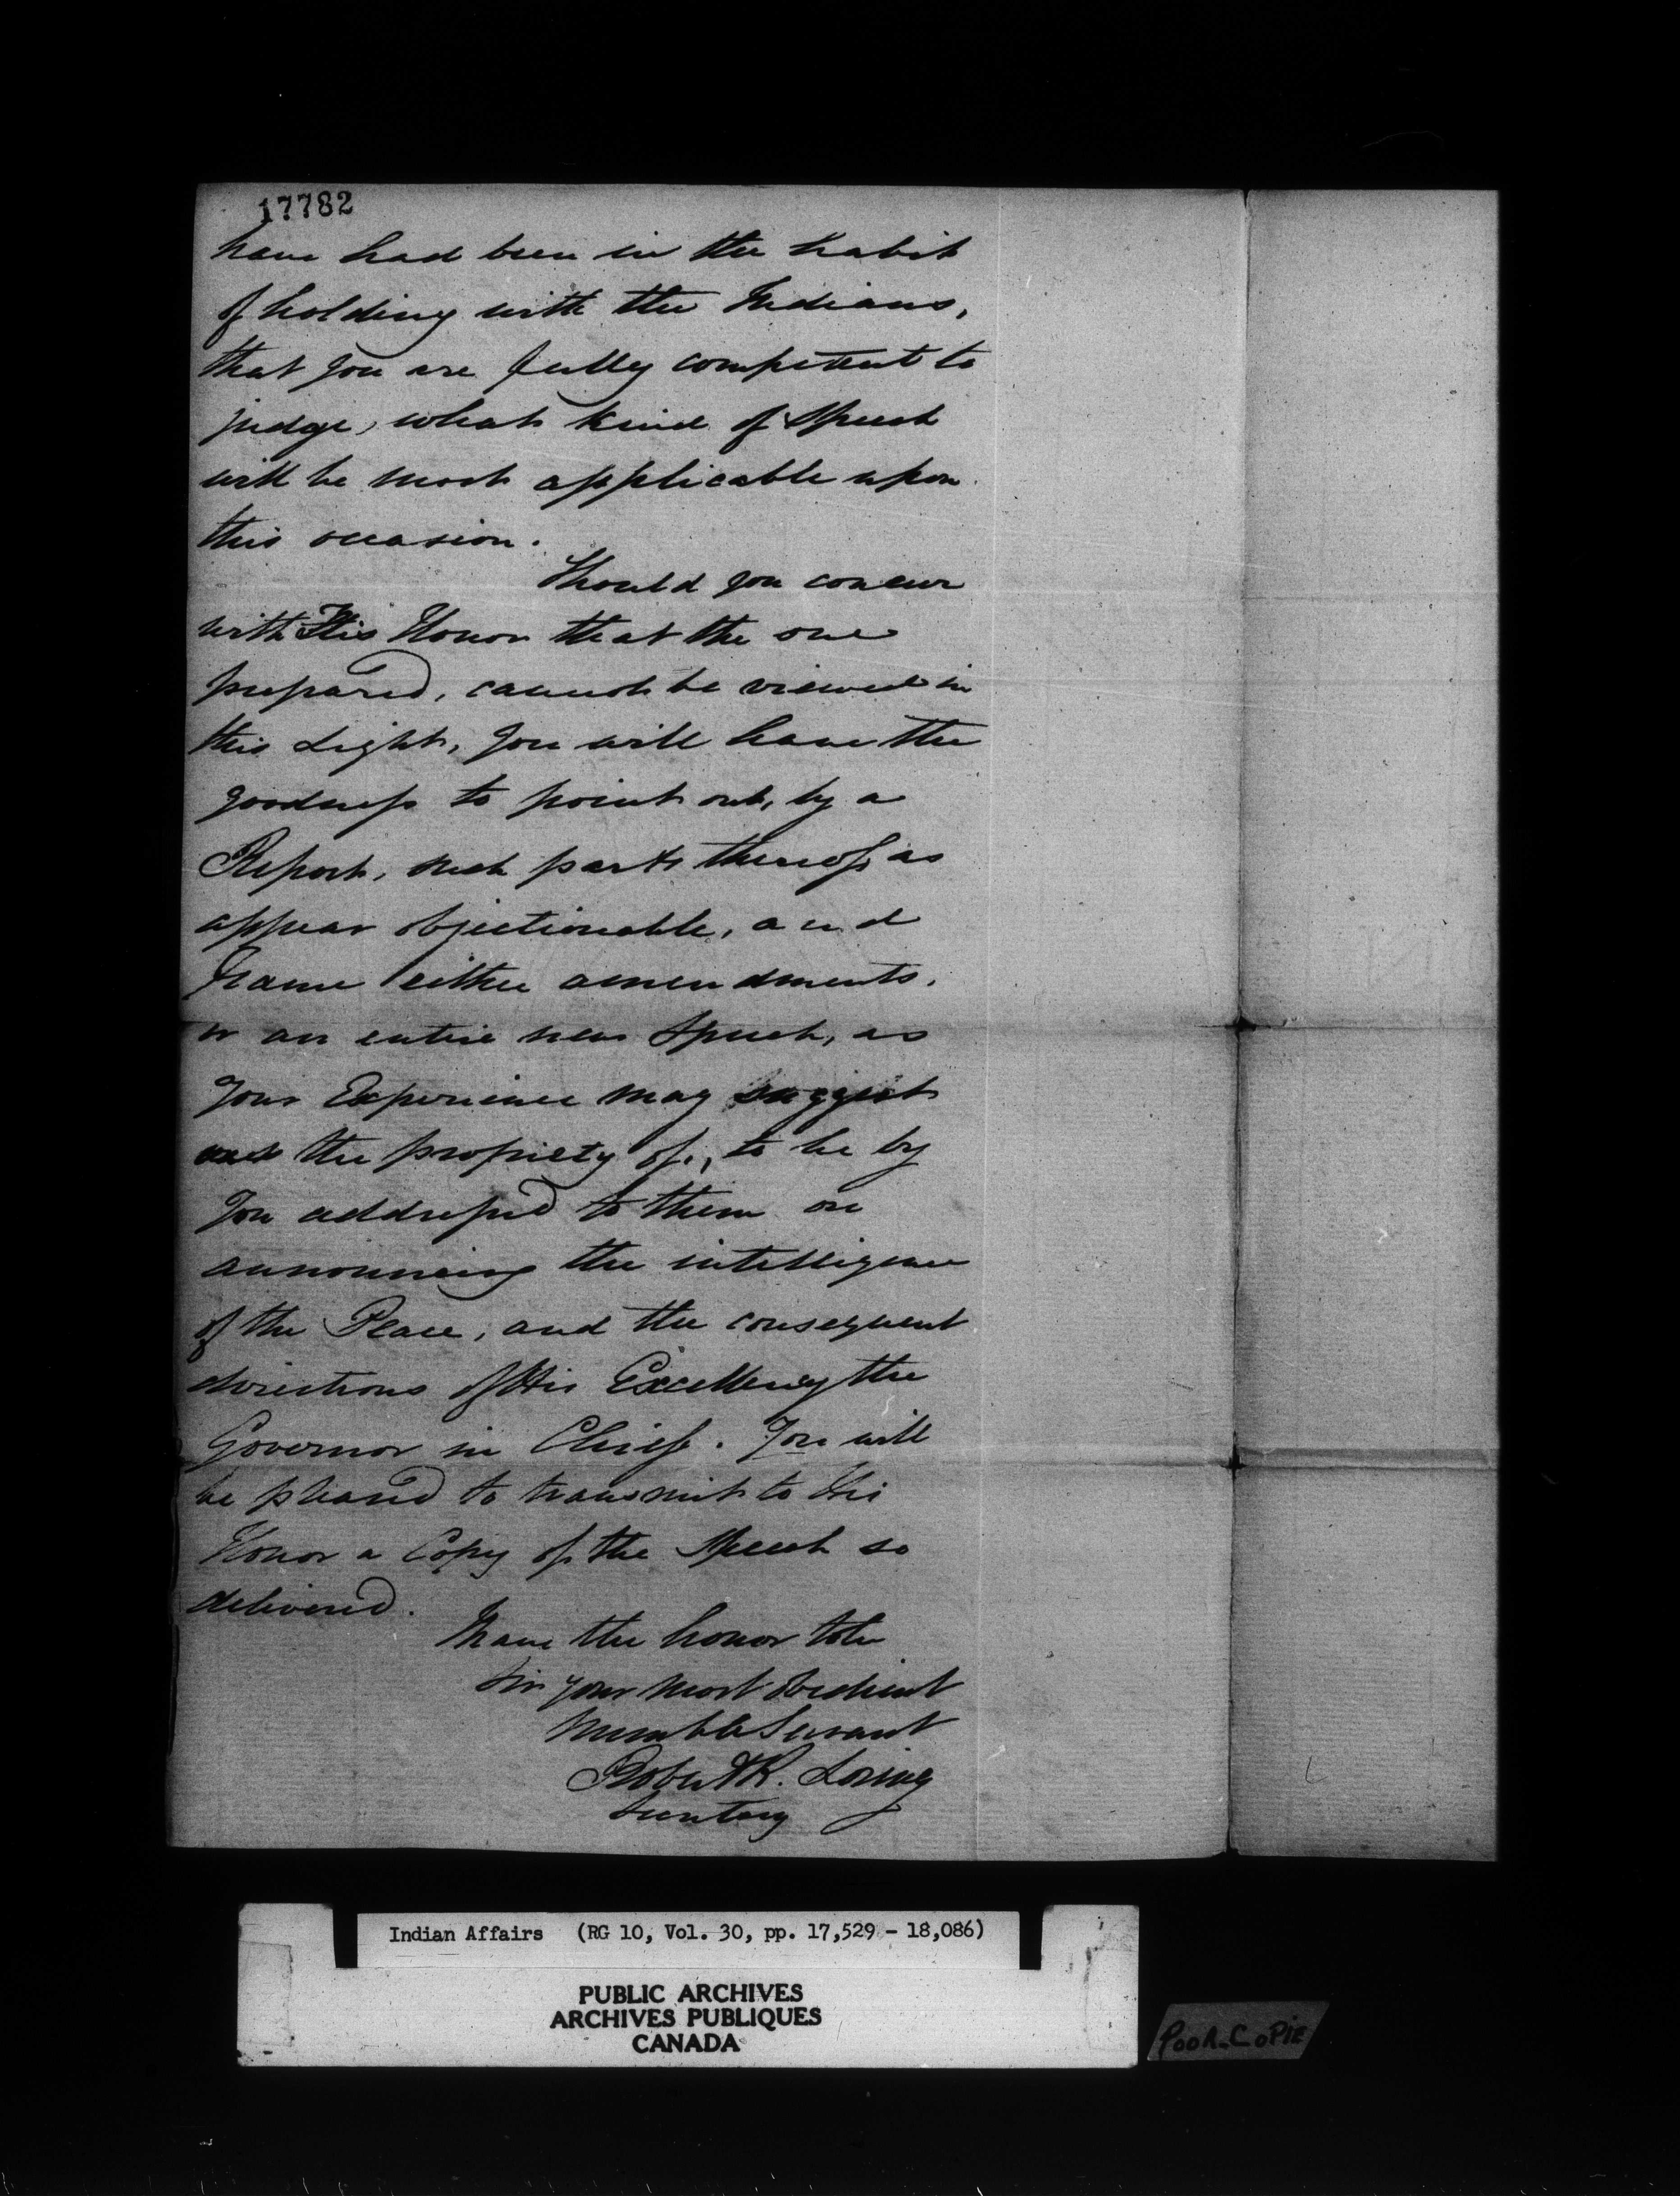 17782
have had been in the habit
of holding with the Indians,
that you are fully competent to
judge, what kind of Speech
will be most applicable upon
this occasion.
Should you concur
with His Honor that the one
prepared, cannot be viewed in
this Light, you will have the
goodness to point out, by a
Report, such parts thereof as
appear objectionable, and
frame either amendments,
or an entire new Speech, as
Your Experience may suggest
the propriety of, to be by
You addressed to them on
announcing the intelligence
of the Peace, and the consequent
directions of His Excellency the
Governor in Chief. You will
be pleased to transmit to His
Honor a Copy of the Speech so
delivered.
I have the honor to be
Sir your most obedient
Humble Servant
Robert R. Loring
Secretary
Indian Affairs (RG 10, Vol. 30, pp. 17,529 - 18,086)
PUBLIC ARCHIVES
ARCHIVES PUBLIQUES
CANADA
POOR COPIE